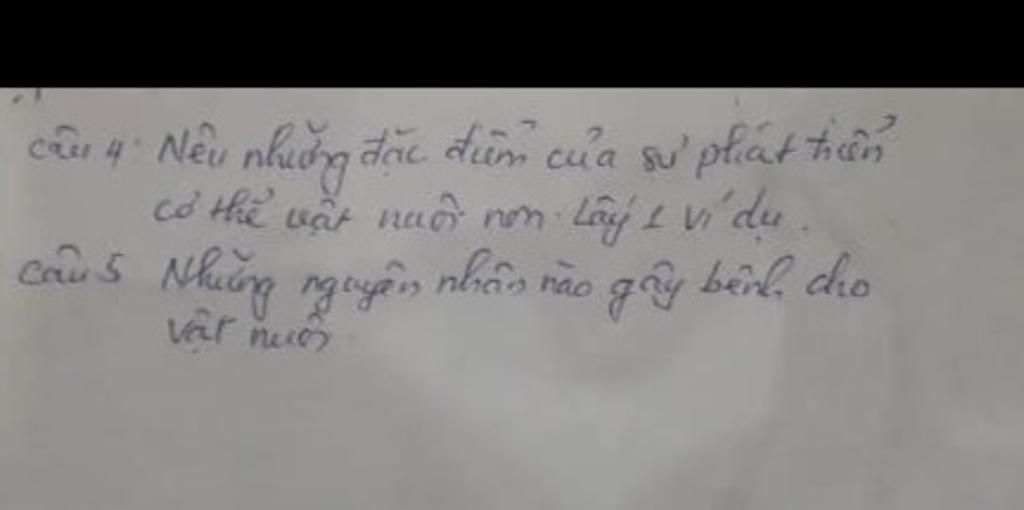 Câu 4: Nêu những đặc điểm của sự phát triển
cơ thể vật nuôi non. Lấy 1 ví dụ.
Câu 5 Những nguyên nhân nào gây bệnh cho
vật nuôi